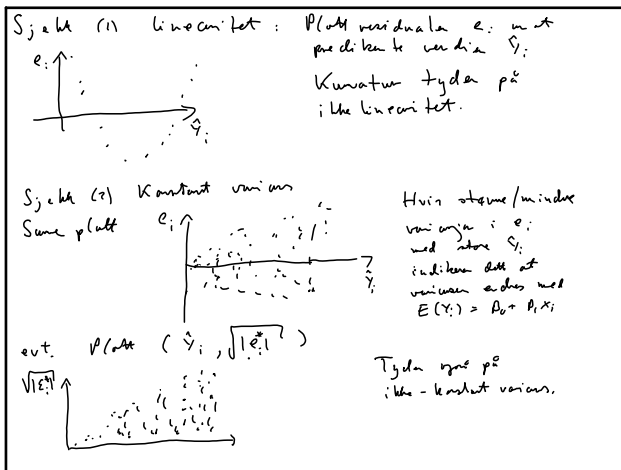 Sjekk (1) linearitet : Plott residualer e_i mot
predikerte verdier Ŷ_i
e_i
Ŷ_i
Kurvatur tyder på
ikke linearitet.
Sjekk (2) Konstant varians
Samme plott
e_i
Ŷ_i
Hvis større/mindre
variasjon i e_i
med store Ŷ_i
indikerer dett at
variansen endres med
E(Y_i) = β_0 + β_1 x_i
evt. Plott ( Ŷ_i , √|e_i^*| )
√|e_i^*|
Tyder på
ikke-konstant varians.